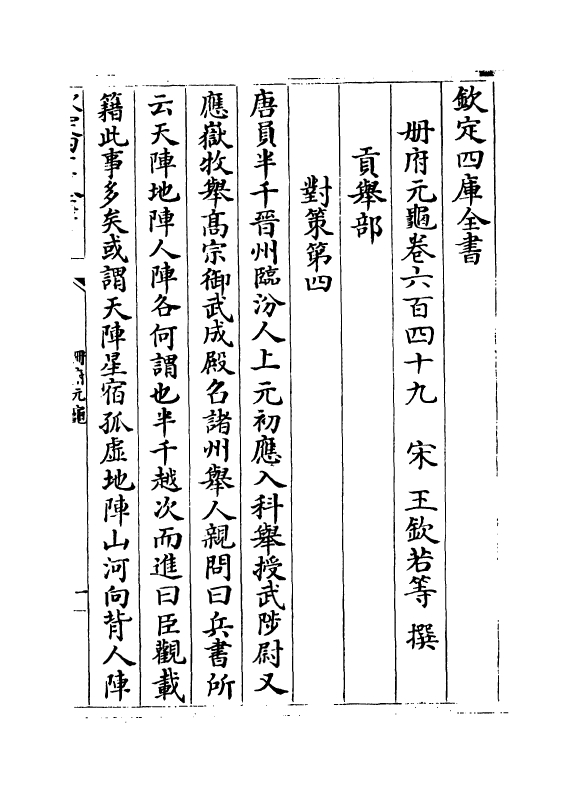 欽定四庫全書
冊府元龜卷六百四十九　宋　王欽若等　撰
貢舉部
對策第四
唐員半千晉州臨汾人上元初應入科舉授武陟尉又
應嶽牧舉髙宗御武成殿名諸州舉人親問曰兵書所
云天陣地陣人陣各何謂也半千越次而進曰臣觀載
籍此事多矣或謂天陣星宿孤虛地陣山河向背人陣
冊府元龜
一